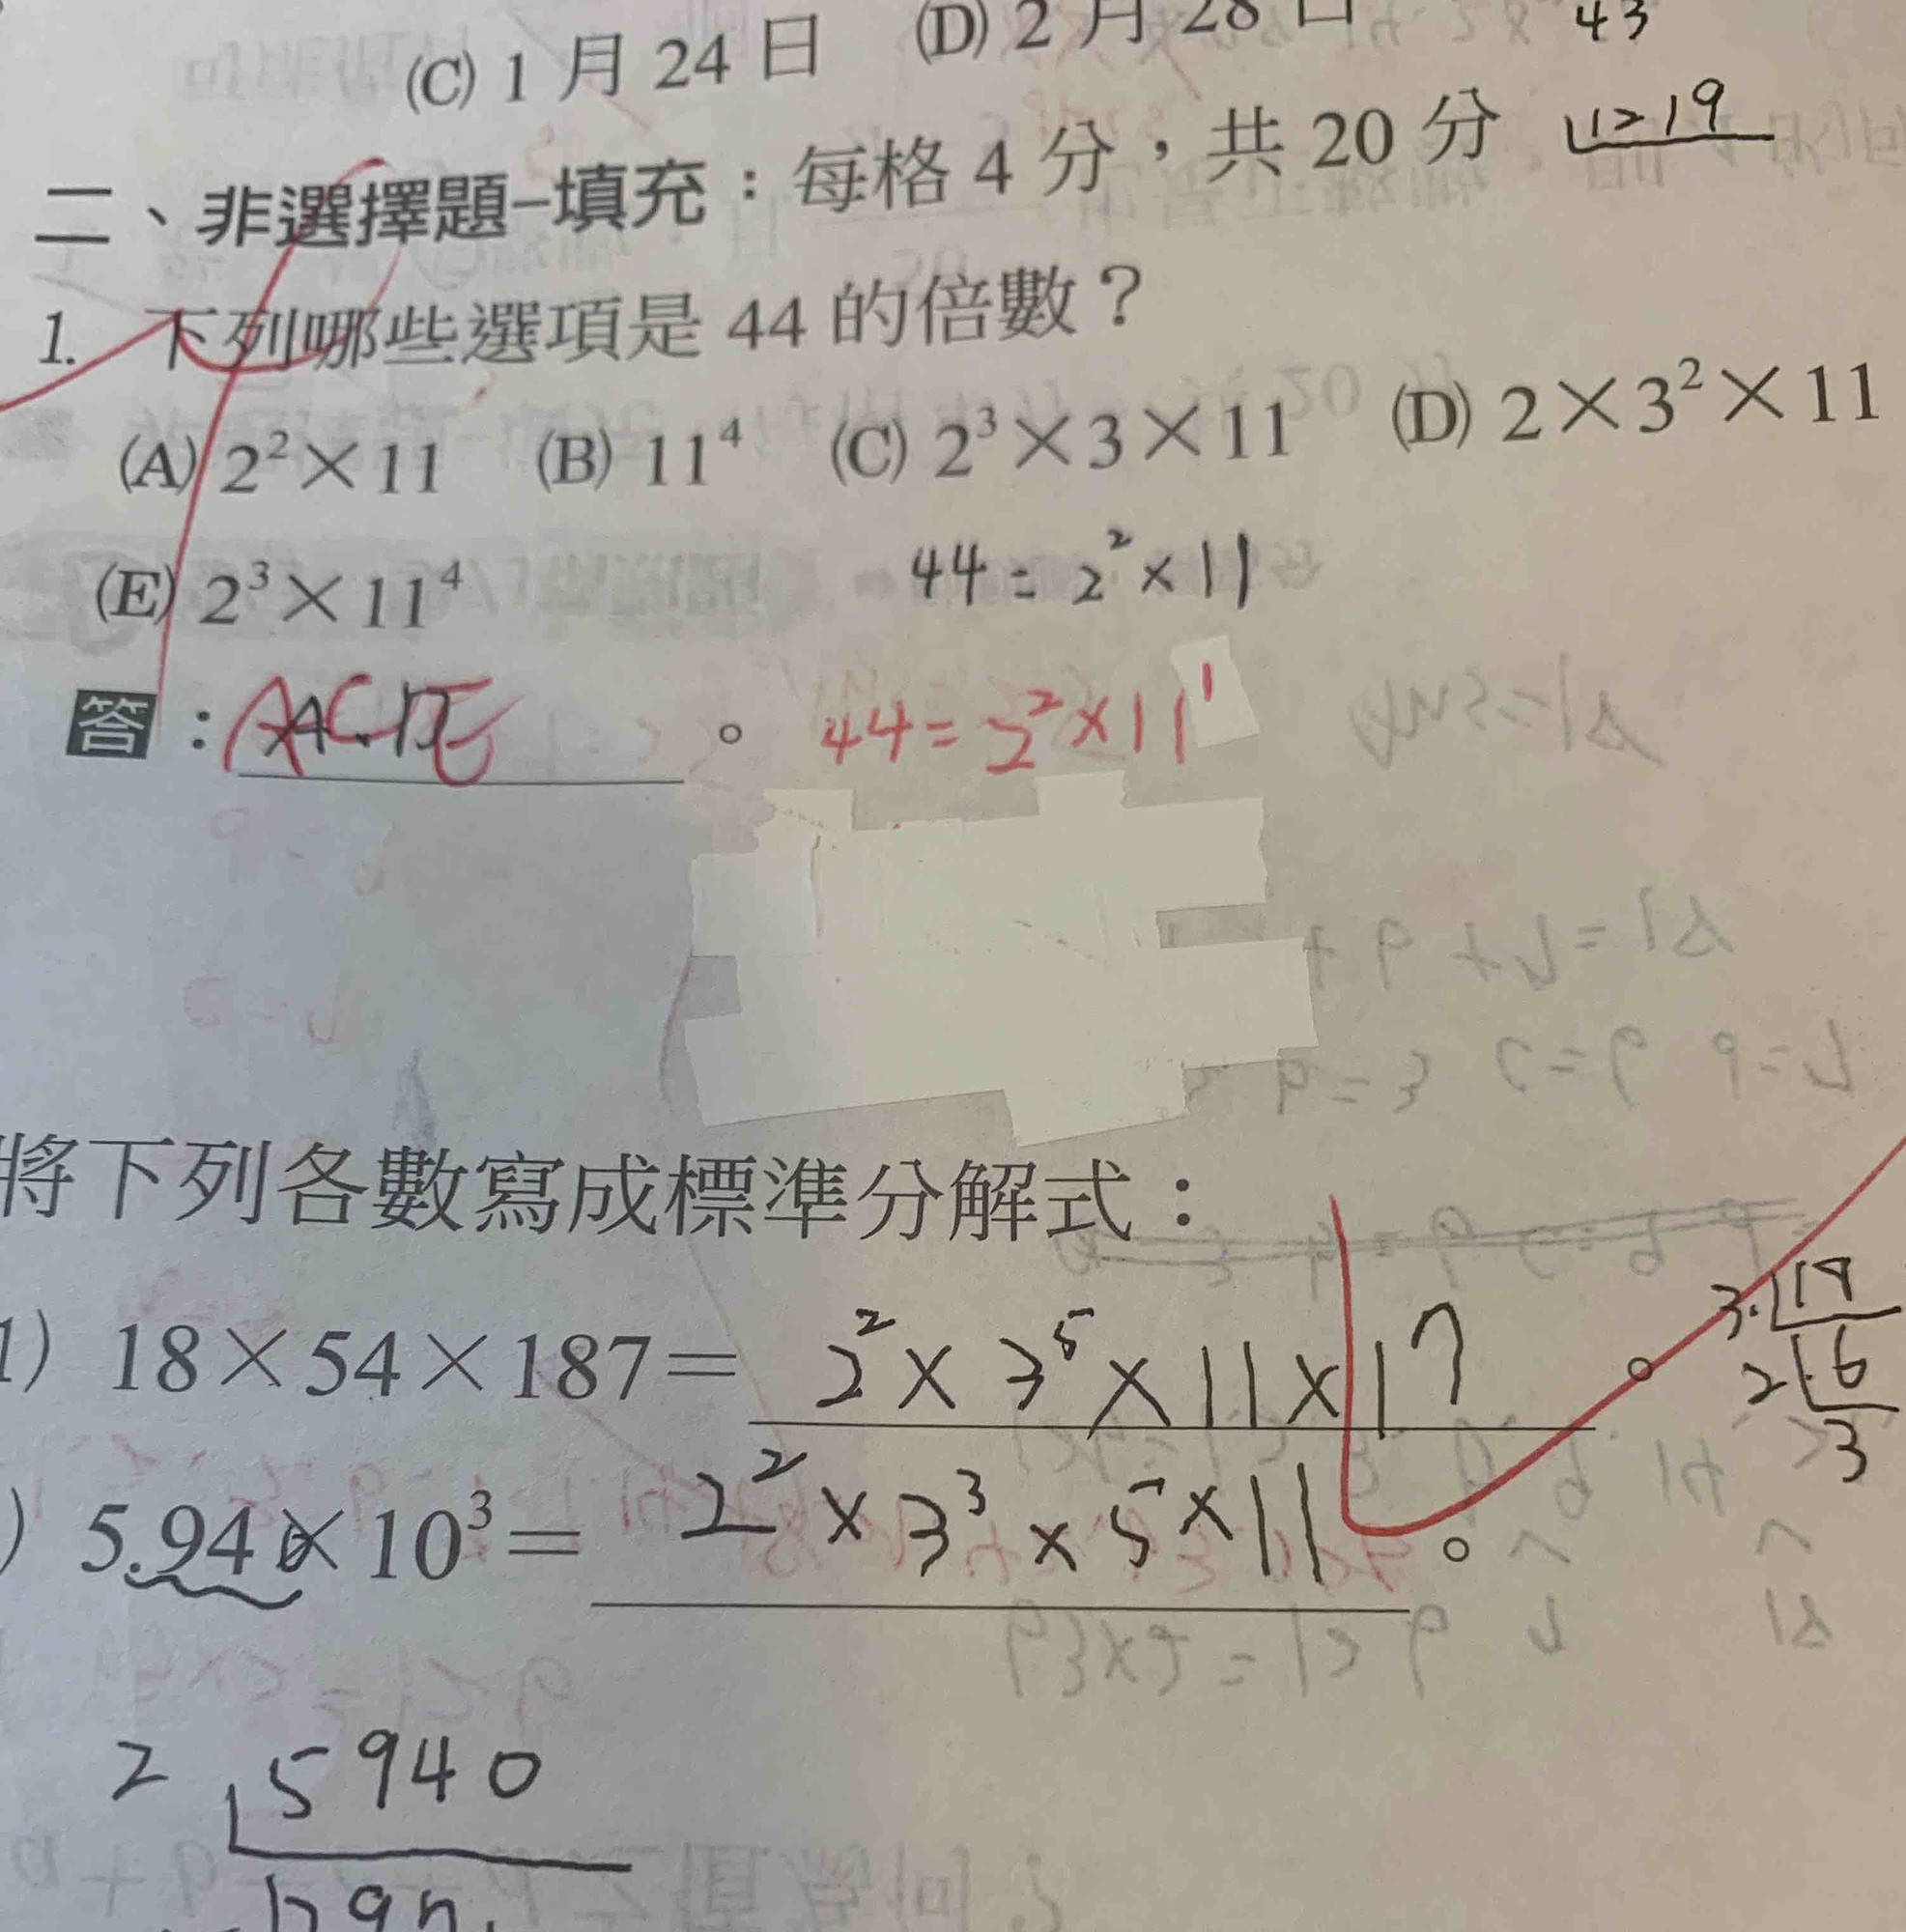 (C) 1 月 24 日 (D) 2 月 28 日 43
1219
二、非選擇題–填充：每格 4 分，共 20 分
1. 下列哪些選項是 44 的倍數？
(A) 2²×11 (B) 11⁴ (C) 2³×3×11 (D) 2×3²×11
(E) 2³×11⁴
44=2²×11
答：ACE。 44=2²×11¹
將下列各數寫成標準分解式：
1) 18×54×187= 2²×3⁵×11×17。
) 5.94×10³= 2²×3³×5×11。
3 18
2 6
3
2 5940